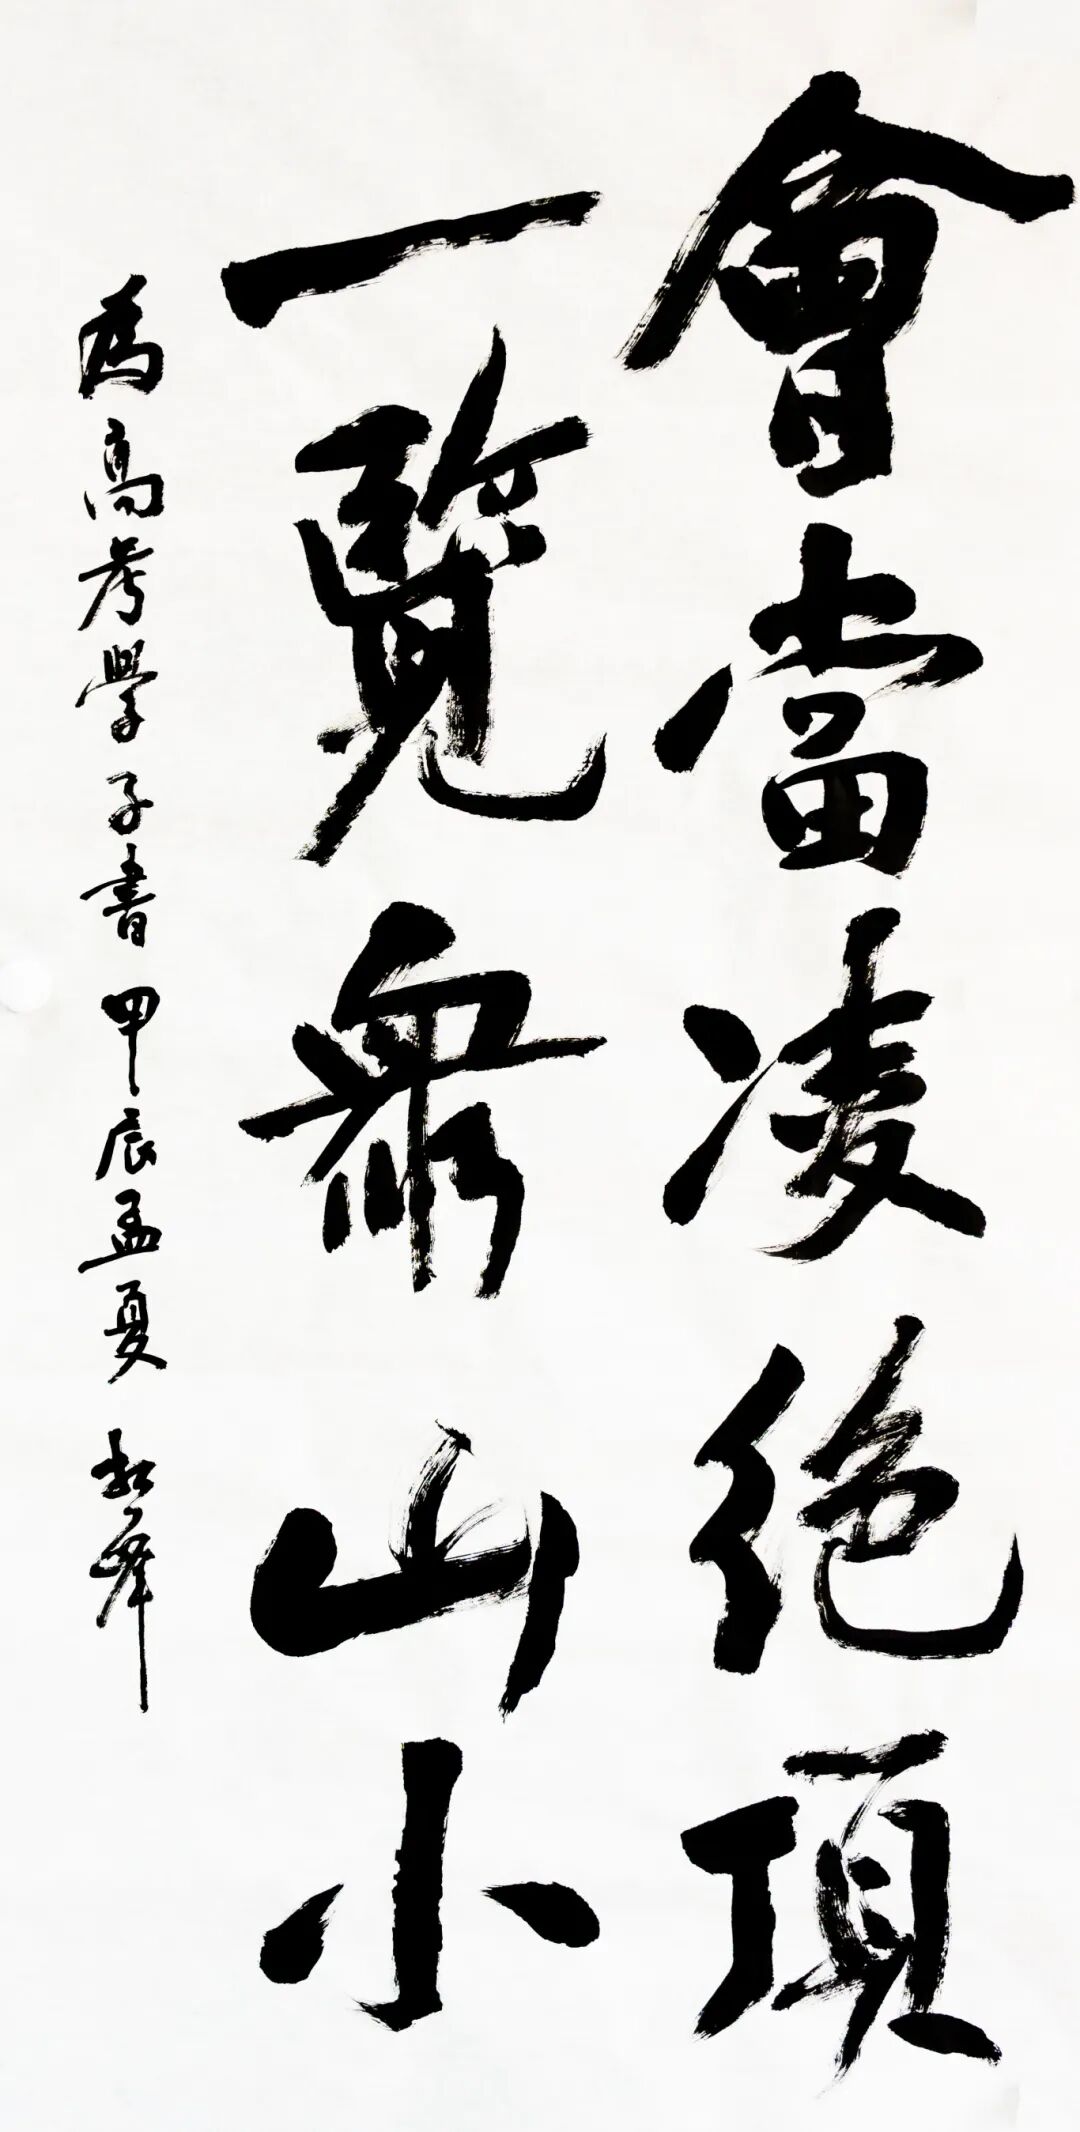 會當凌絕頂
一覽眾山小
為高考學子書 甲辰孟夏 松峰